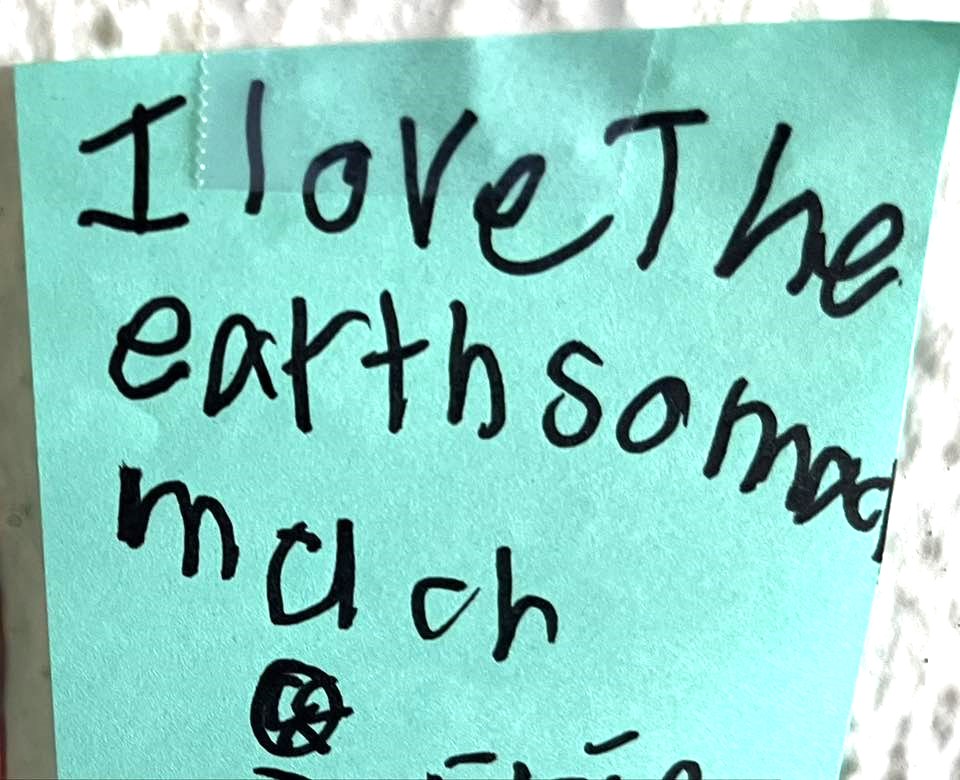 I love The
earth so mach
much